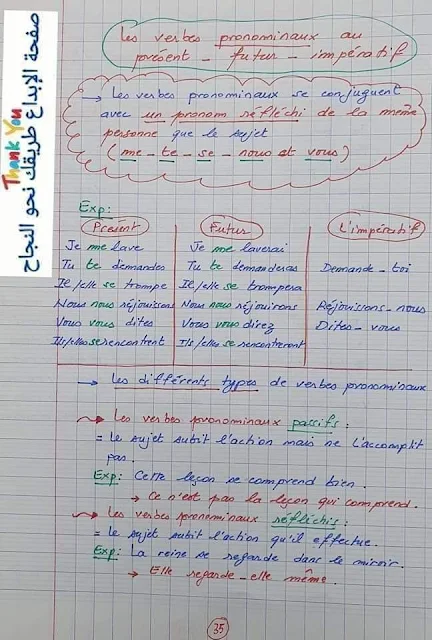 Les verbes pronominaux au
présent - futur - impératif
→ Les verbes pronominaux se conjuguent
avec un pronom réfléchi de la même
personne que le sujet
(me - te - se - nous et vous)
صفحة الإبداع طريقك نحو النجاح
Thank You
Exp:
Présent Futur L'impératif
Je me lave Je me laverai
Tu te demandes Tu te demanderas Demande-toi
Il/elle se trompe Il/elle se trompera
Nous nous réjouissons Nous nous réjouirons Réjouissons-nous
Vous vous dites Vous vous direz Dites-vous
Ils/elles se rencontrent Ils/elles se rencontreront
→ Les différents types de verbes pronominaux
→ Les verbes pronominaux passifs:
= le sujet subit l'action mais ne l'accomplit
pas.
Exp: Cette leçon se comprend bien.
→ Ce n'est pas la leçon qui comprend.
→ Les verbes pronominaux réfléchis:
= le sujet subit l'action qu'il effectue.
Exp: La reine se regarde dans le miroir.
→ Elle regarde-elle même.
35